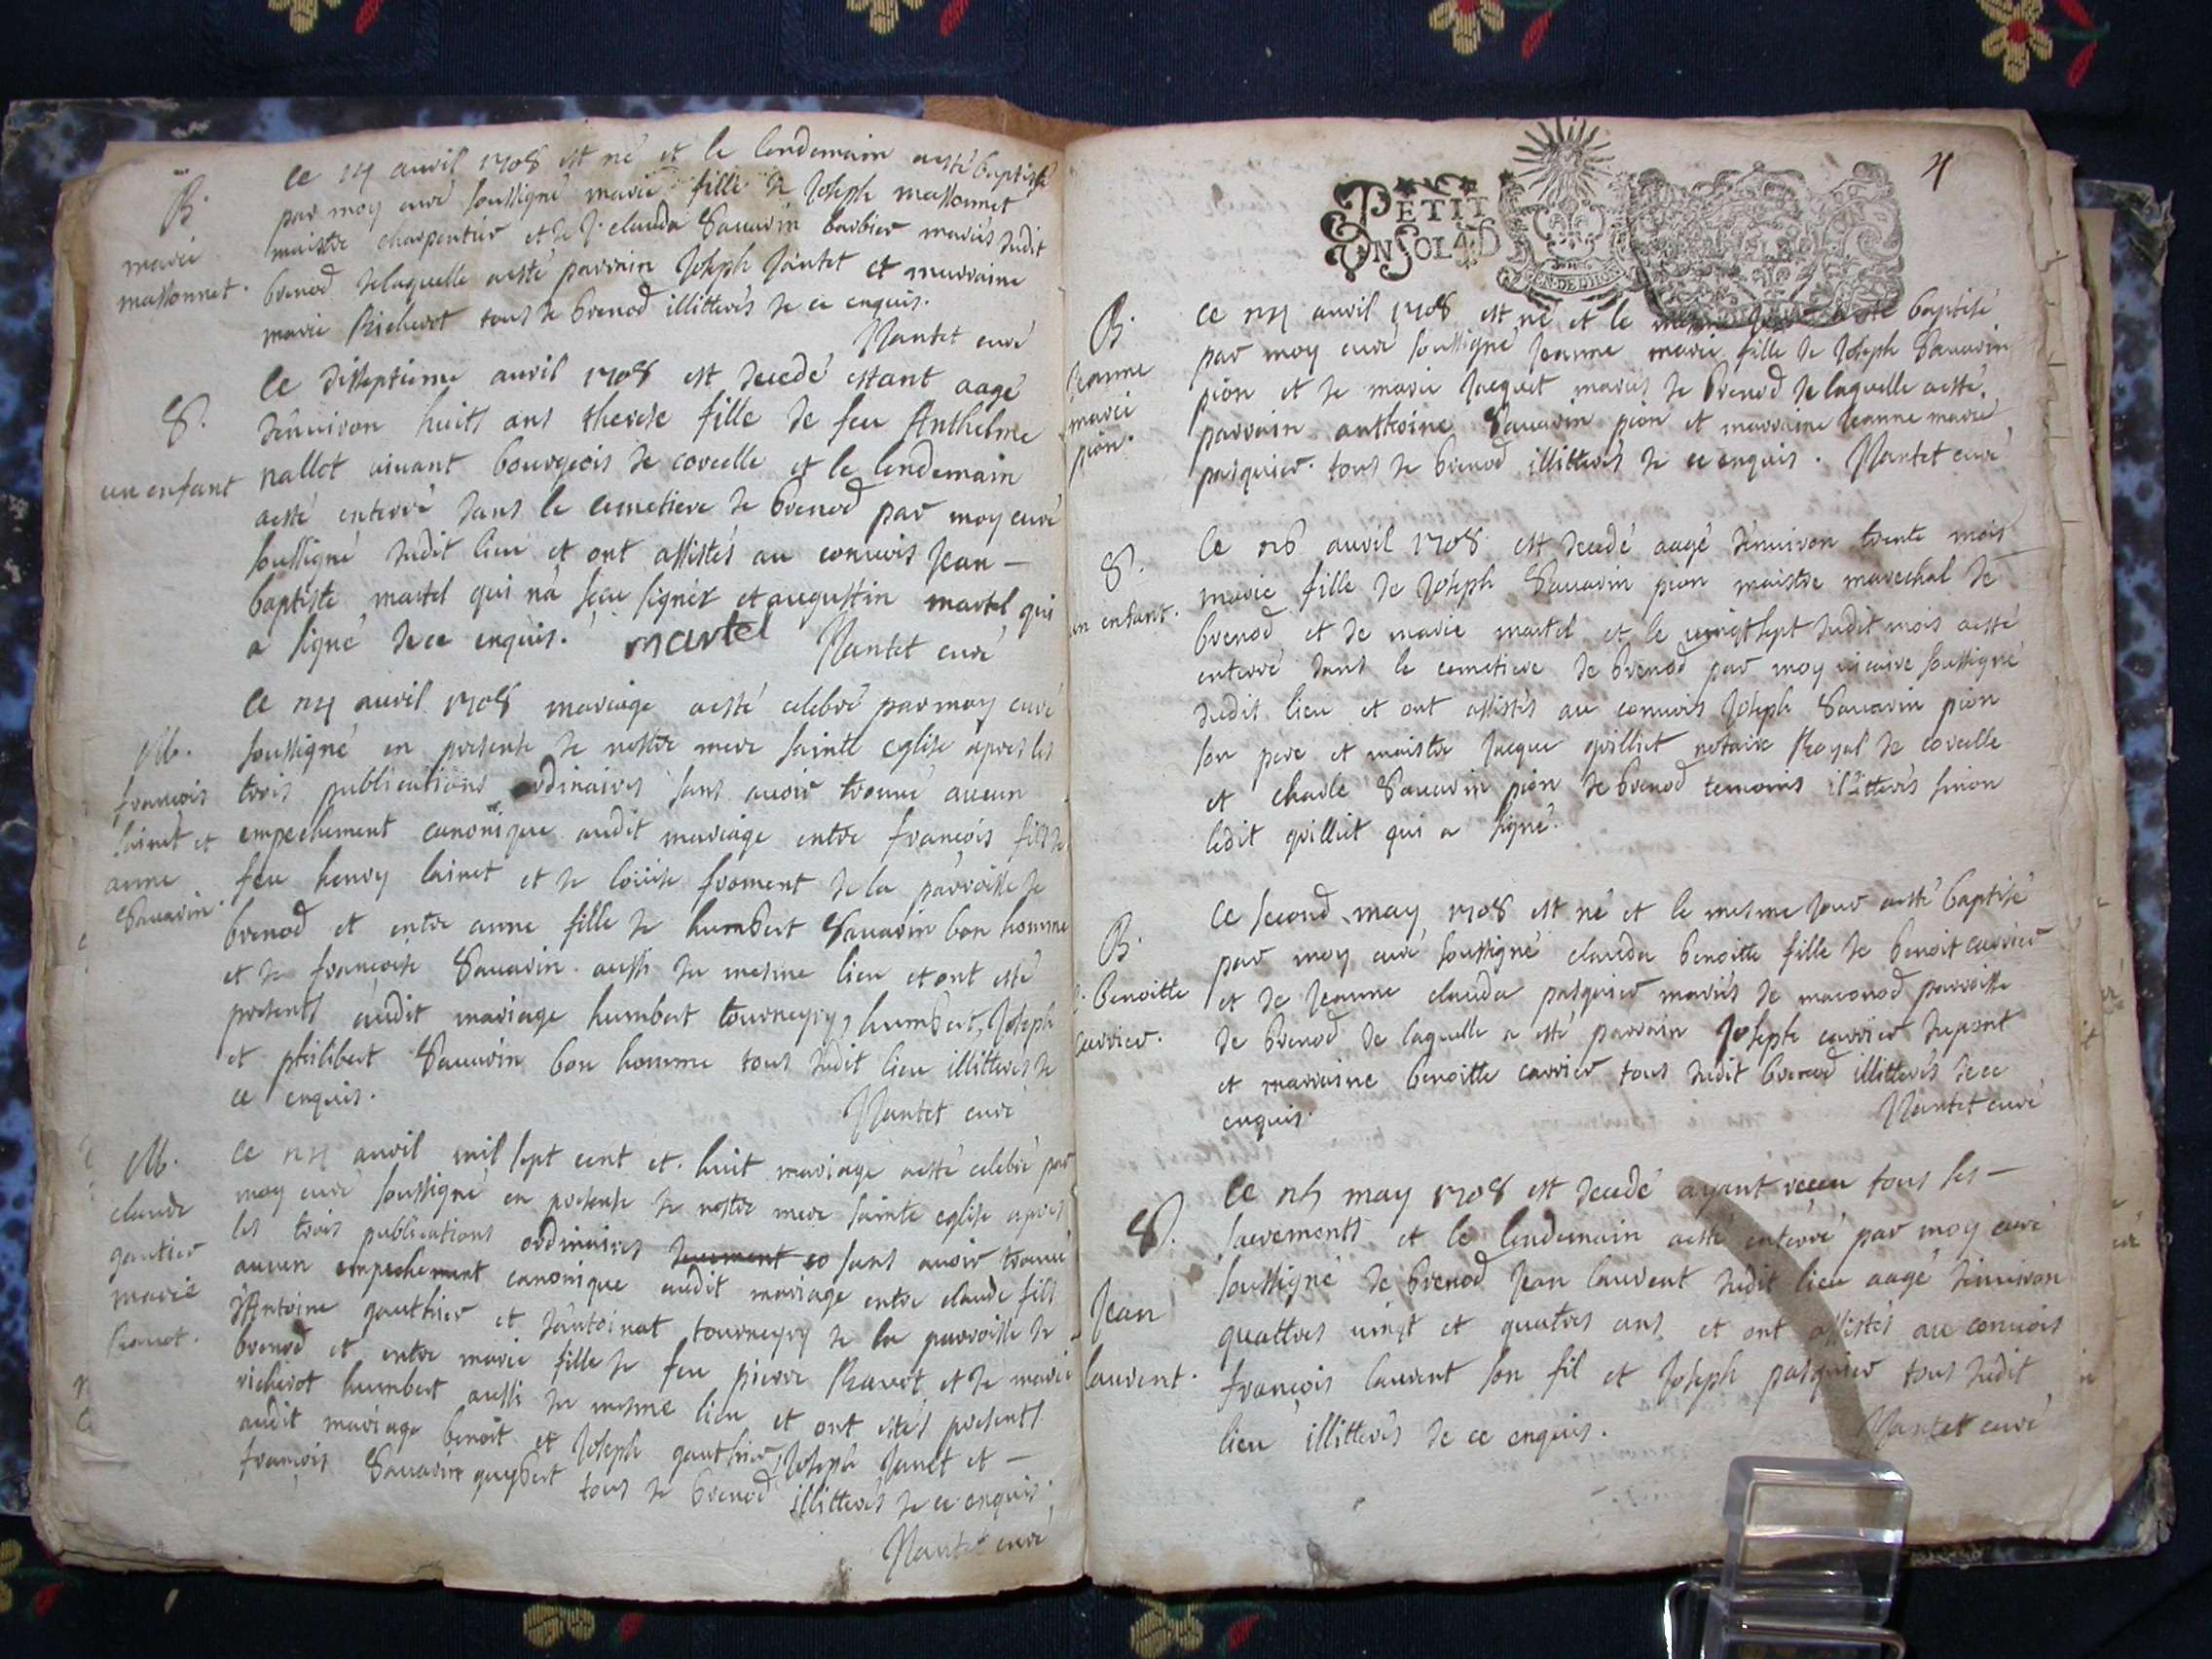 B.
marie
massonnet.
Le 14 auril 1708 est né et le lendemain aesté baptisé
par moy curé soussigné marie fille de Joseph massonnet
maistre charpentier et de J. clauda Sauarin barbier mariés dudit
brenod delaquelle aesté parrain Joseph Jantet et marraine
marie Richerot tous de brenod illitterés de ce enquis.
Nantet curé
S.
un enfant
Le disseptieme auril 1708 est decedé estant aagé
d'enuiron huits ans therese fille de feu Anthelme
nallet uiuant bourgeois de corcelle et le lendemain
aesté enterré dans le cemetiere de brenod par moy curé
soussigné dudit lieu et ont assistés au conuois Jean —
baptiste martel qui na sceu signer et augustin martel qui
a signé de ce enquis. martel Nantet curé
M.
francois
lainet et
anne
Sauarin.
Le 24 auril 1708 mariage aesté celebré par moy curé
soussigné en presense de nostre mere sainte eglise apres les
trois publications ordinaires sans auoir trouué aucun
empechement canonique audit mariage entre francois fils de
feu henry lainet et de loüise froment de la parroisse de
brenod et entre anne fille de humbert Sauarin bon homme
et de francoise Sauarin aussi du mesme lieu et ont esté
presents audit mariage humbert tourneyry, humbert, Joseph
et philibert Sauarin bon homme tous dudit lieu illitterés de
ce enquis.
Nantet curé
M.
claude
gautier
marie
Rauot.
Le 24 auril mil sept cent et huit mariage aesté celebré par
moy curé soussigné en presense de nostre mere sainte eglise apres
les trois publications ordinaires sans auoir trouué
aucun empechement canonique audit mariage entre claude fils
d'Antoine gauthier et d'antoinat tourneyry de la parroisse de
brenod et entre marie fille de feu pierre Rauot et de marie
richerot humbert aussi du mesme lieu et ont estés presents
audit mariage benoit et Joseph gauthier, Joseph Janet et —
francois Sauarin guybert tous de brenod illitterés de ce enquis.
Nantet curé
4
PETIT
UN SOL 4 D
GEN. DE DIION
B.
Jeanne
marie
pion.
Le 24 auril 1708 est né et le mesme Jour aesté baptisé
par moy curé soussigné Jeanne marie fille de Joseph Sauarin
pion et de marie Jacquet mariés de Brenod de laquelle aesté
parrain anthoine Sauarin pion et marraine Jeanne marie
pasquier tous de brenod illitterés de ce enquis. Nantet curé
S.
un enfant.
Le 26 auril 1708 est decedé aagé d'enuiron trente mois
marie fille de Joseph Sauarin pion maistre marechal de
brenod et de marie martel et le uingt sept dudit mois aesté
enterré dans le cemetiere de brenod par moy uicaire soussigné
dudit lieu et ont assistés au conuois Joseph Sauarin pion
son pere et maistre Jacque grilliet notaire Royal de corcelle
et charle Sauarin pion de brenod temoins illitterés sinon
ledit grilliet qui a signé.
B.
c. Benoitte
carrier.
Le second may 1708 est né et le mesme Jour aesté baptisé
par moy curé soussigné clauda benoitte fille de benoit carrier
et de Jeanne clauda pasquier mariés de maconod parroisse
de Brenod de laquelle a esté parrain Joseph carrier dupont
et marraine benoitte carrier tous dudit brenod illitterés de ce
enquis.
Nantet curé
S.
Jean
laurent.
Le 25 may 1708 est decedé ayant receu tous ses —
sacrements et le lendemain aesté enterré par moy curé
soussigné de brenod Jean laurent dudit lieu aagé d'enuiron
quattres uingt et quatres ans et ont assistés au conuois
francois laurent son fil et Joseph pasquier tous dudit
lieu illitterés de ce enquis.
Nantet curé